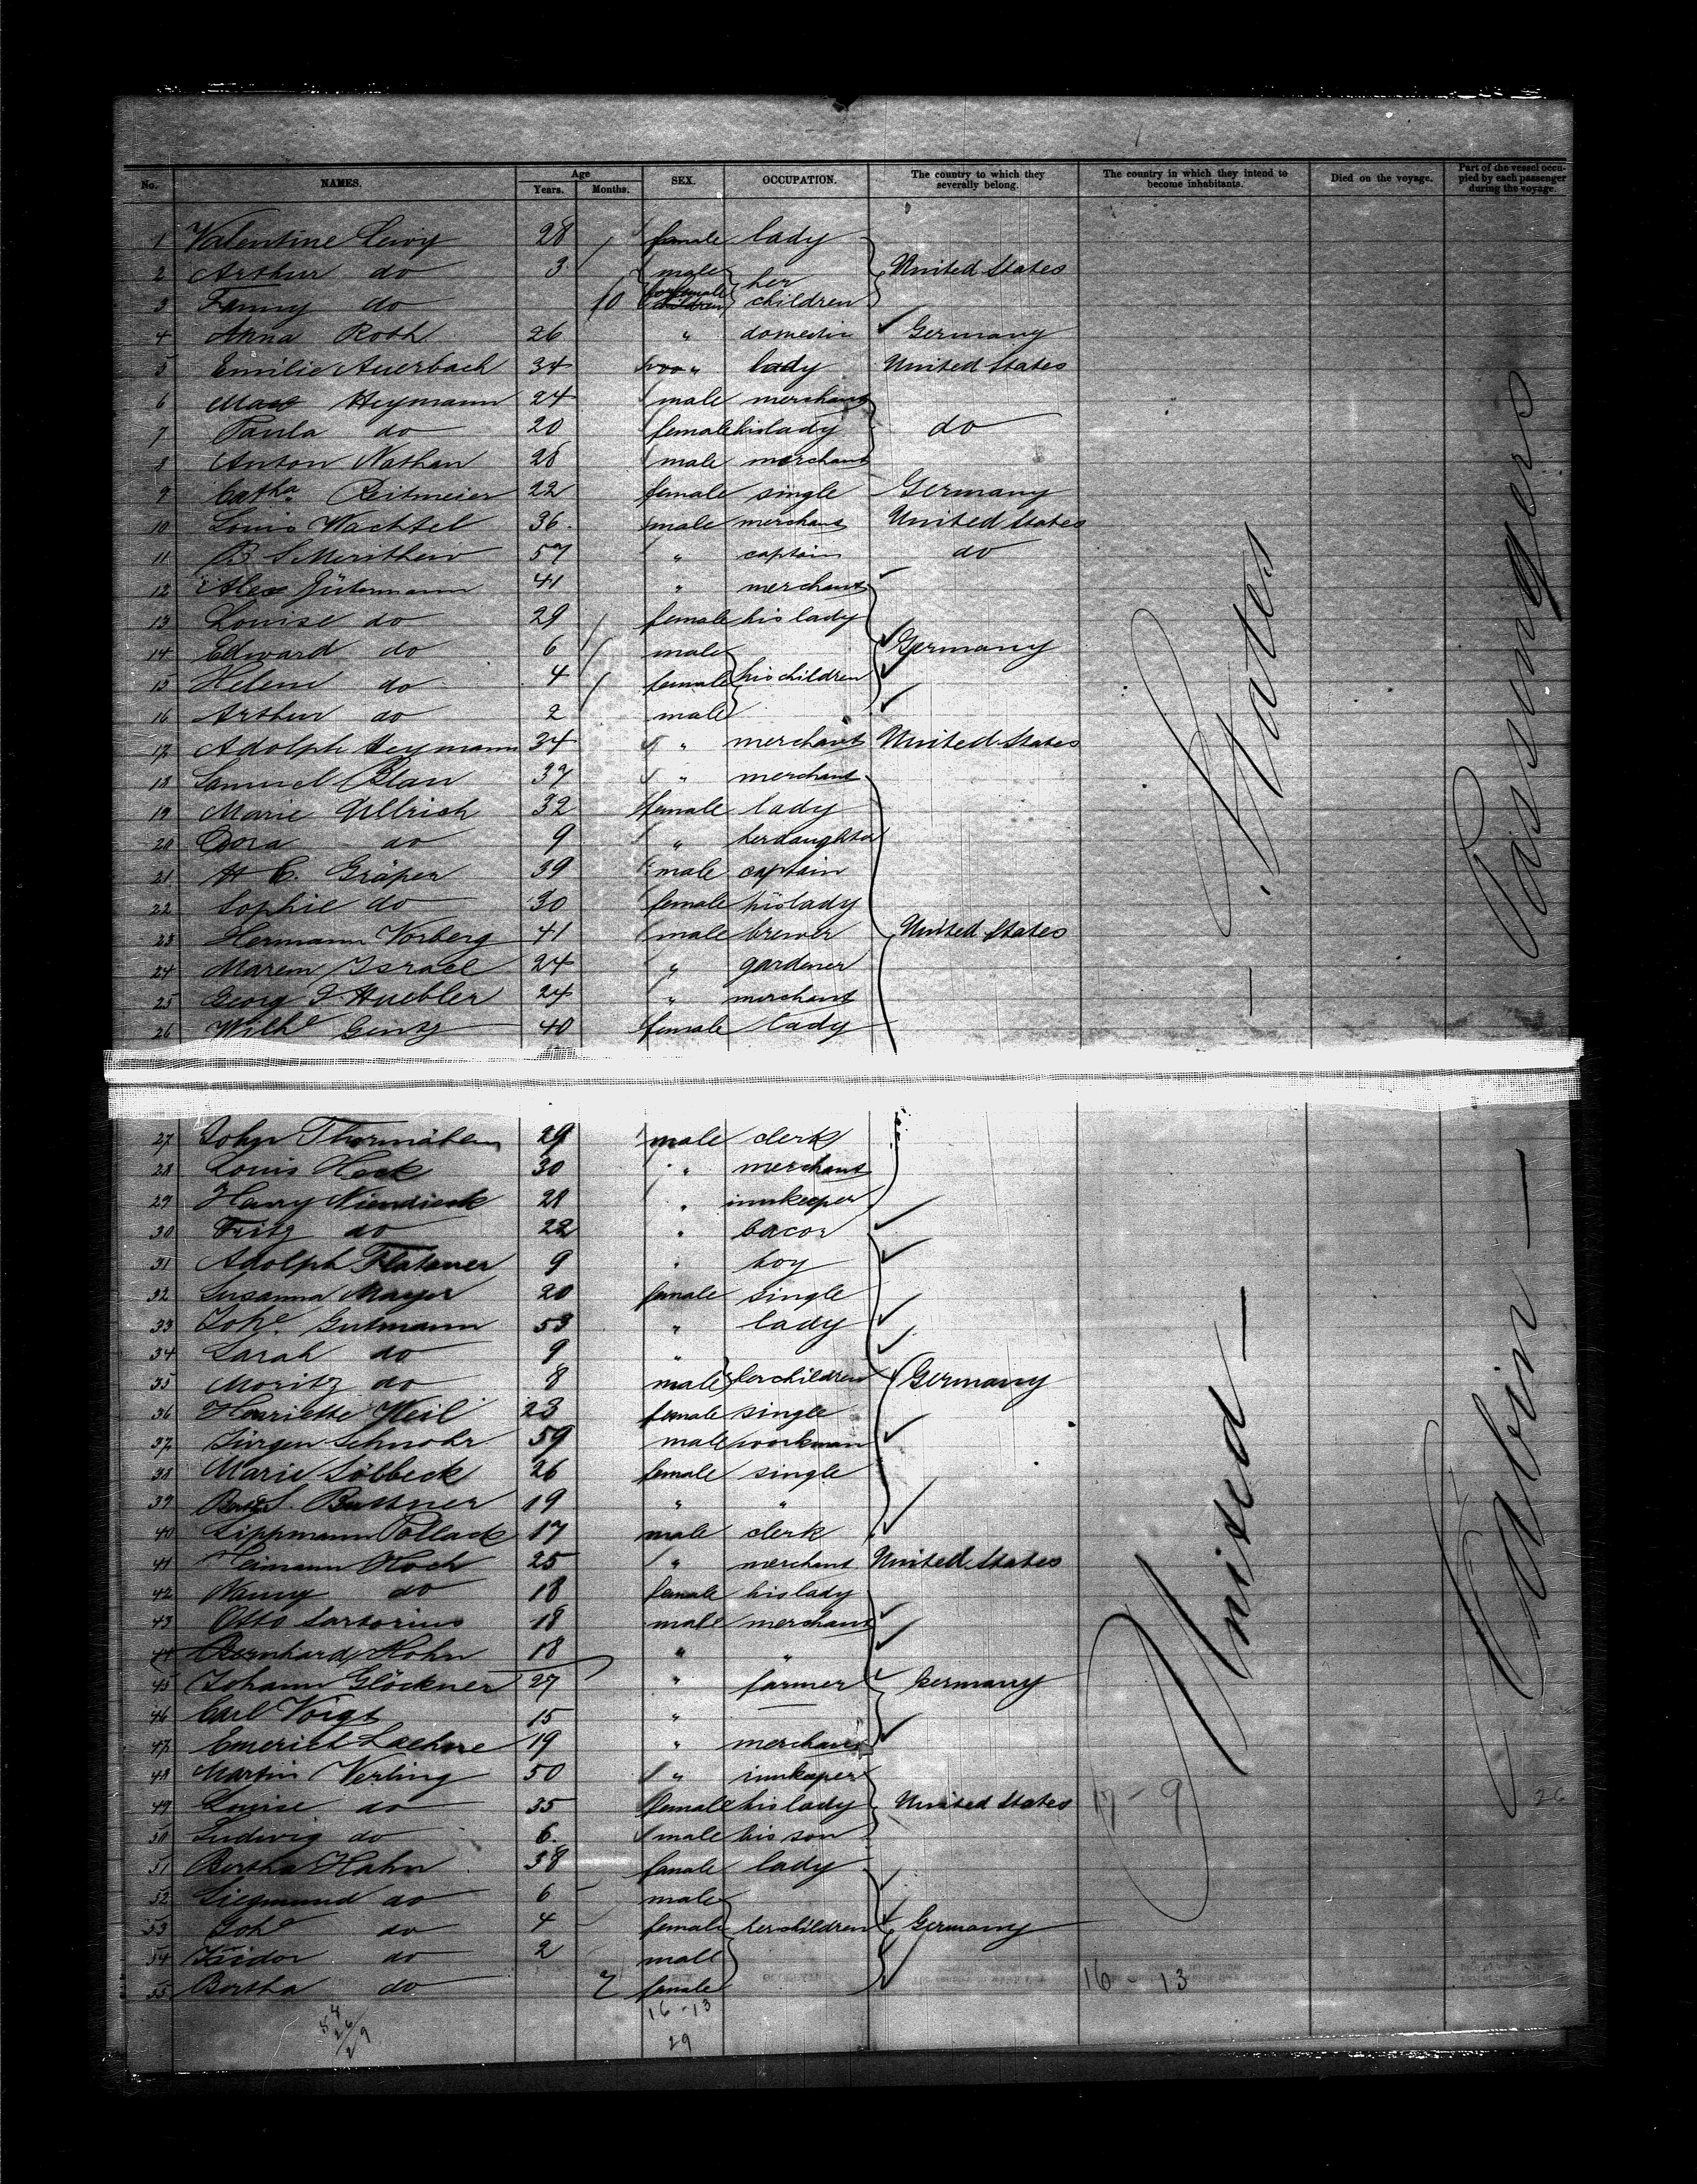 No. NAMES. Age Years. Months. SEX. OCCUPATION. The country to which they severally belong. The country in which they intend to become inhabitants. Died on the voyage. Part of the vessel occupied by each passenger during the voyage.
1 Valentine Levy 28 female lady
2 Arthur do 3 male her United States
3 Fanny do 10 female children
4 Anna Roth 26 " domestic Germany
5 Emilie Auerbach 34 " lady United States
6 Max Heymann 24 male merchant
7 Paula do 20 female his lady do
8 Anton Nathan 28 male merchant
9 Catha Reitmeier 22 female single Germany
10 Louis Wachtel 36. male merchant United States
11 R S Merithew 57 " captain do
12 Alex Gütermann 41 " merchant
13 Louise do 29 female his lady
14 Edward do 6 male Germany
15 Helene do 4 female his children
16 Arthur do 2 male
17 Adolph Heymann 34 " merchant United States
18 Samuel Blau 37 " merchant
19 Marie Ullrich 32 female lady
20 Dora do 9 " her daughter
21 H C. Gräper 39 male captain
22 Sophie do 30 female his lady
23 Hermann Vorberg 41 male brewer United States
24 Marem Israel 24 " gardener
25 Georg I Huebler 24 " merchant
26 Wilhe Gentz 40 female lady
27 John Thormählen 29 male clerk
28 Louis Heck 30 " merchant
29 Henry Niendieck 28 " innkeeper
30 Fritz do 22 " bacor
31 Adolph Flatauer 9 " boy
32 Susanna Mayer 20 female single
33 Johe. Gutmann 53 " lady
34 Sarah do 9 "
35 Moritz do 8 male her children Germany
36 Henriette Weil 23 female single
37 Jürgen Schnohr 59 male workman
38 Marie Sölbeck 26 female single
39 S. Buttner 19 " "
40 Lippmann Pollack 17 male clerk
41 Heimann Koch 25 " merchant United States
42 Nanny do 18 female his lady
43 Otto Sartorius 18 male merchant
44 Bernhard Hohn 18 " "
45 Johann Glöckner 27 " farmer Germany
46 Carl Voigt 15 " —
47 Emerich Laehne 19 " merchant
48 Martin Verling 50 " innkeeper
49 Louise do 35 female his lady United States
50 Ludwig do 6. male his son
51 Bertha Hahn 38 female lady
52 Siegmund do 6 male
53 Johe do 4 female her children Germany
54 Isidor do 2 male
55 Bertha do 7 female
United — States —
Cabin — Passengers
17 - 9
26
16 - 13
16 - 13
29
54
26
29